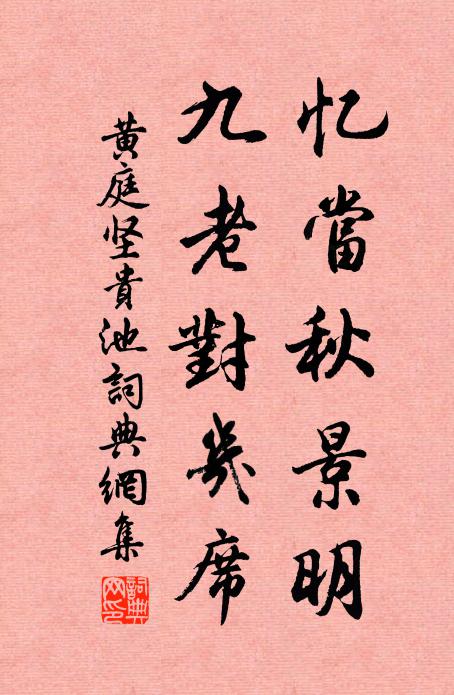 忆當秋景明
九老對幾席
黄庭坚貴池詞典網集
詞典網印